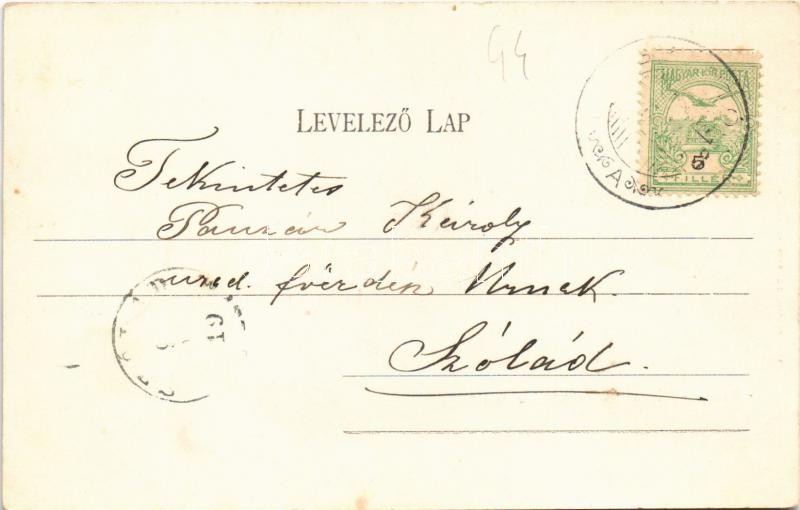 44
LEVELEZŐ LAP
MAGYAR KIR. POSTA
5
FILLÉR
Tekintetes
Károly
urad. főerdész Úrnak.
Szólád.